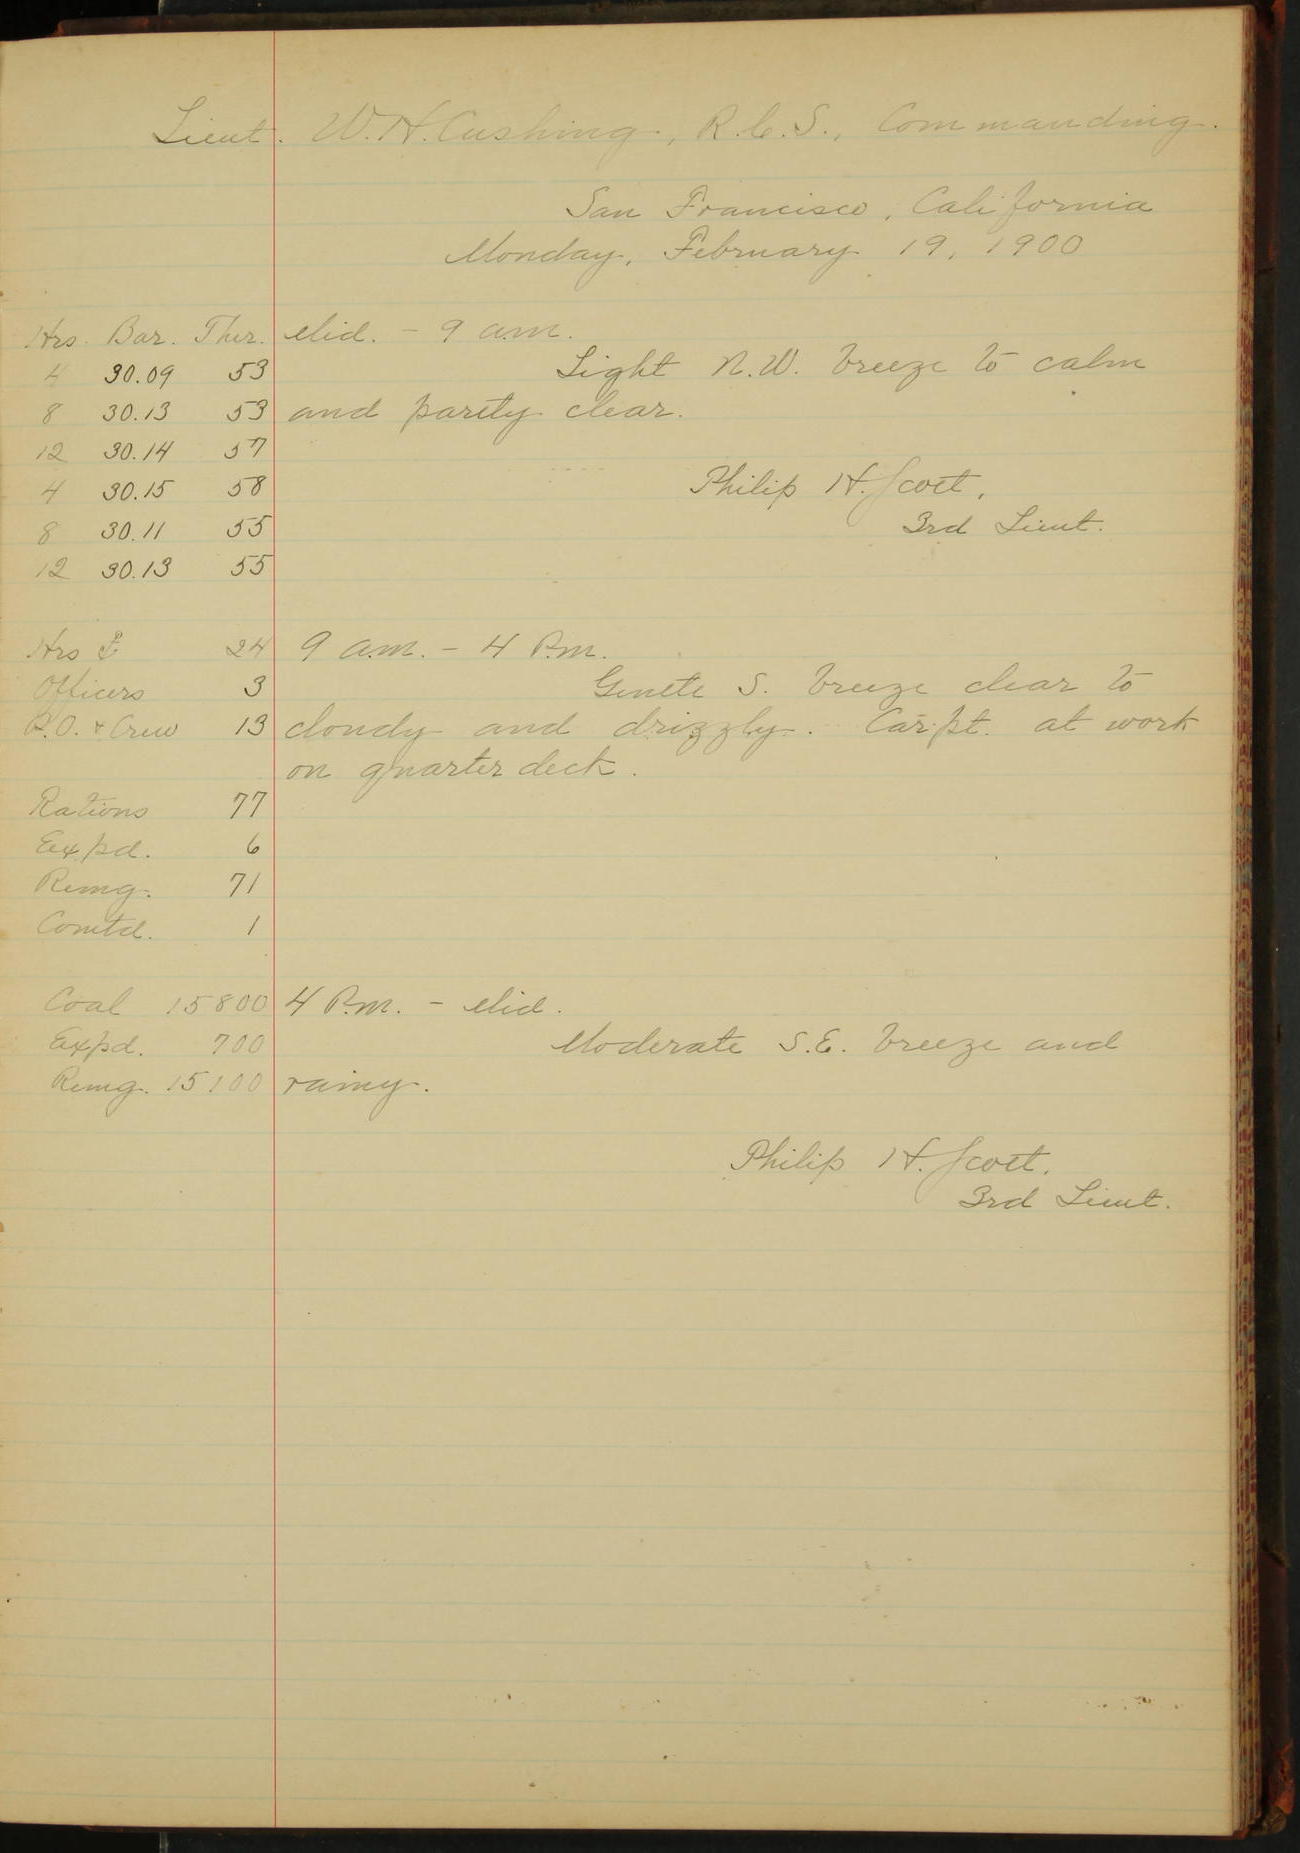 Lieut. W. H. Cushing, R.C.S., Commanding.
San Francisco, California
Monday, February 19, 1900
Hrs. Bar. Ther. Mid. - 9 a.m.
4 30.09 53 Light N.W. breeze to calm
8 30.13 53 and partly clear.
12 30.14 57
4 30.15 58 Philip H. Scott,
8 30.11 55 3rd Lieut.
12 30.13 55
Hrs 24 9 a.m. - 4 P.m.
Officers 3 Gentle S. breeze clear to
P.O. & Crew 13 cloudy and drizzly. Carpt. at work
on quarter deck.
Rations 77
Expd. 6
Remg. 71
Comtd. 1
Coal 15800 4 P.m. - Mid.
Expd. 700 Moderate S.E. breeze and
Remg. 15100 rainy.
Philip H. Scott.
3rd Lieut.